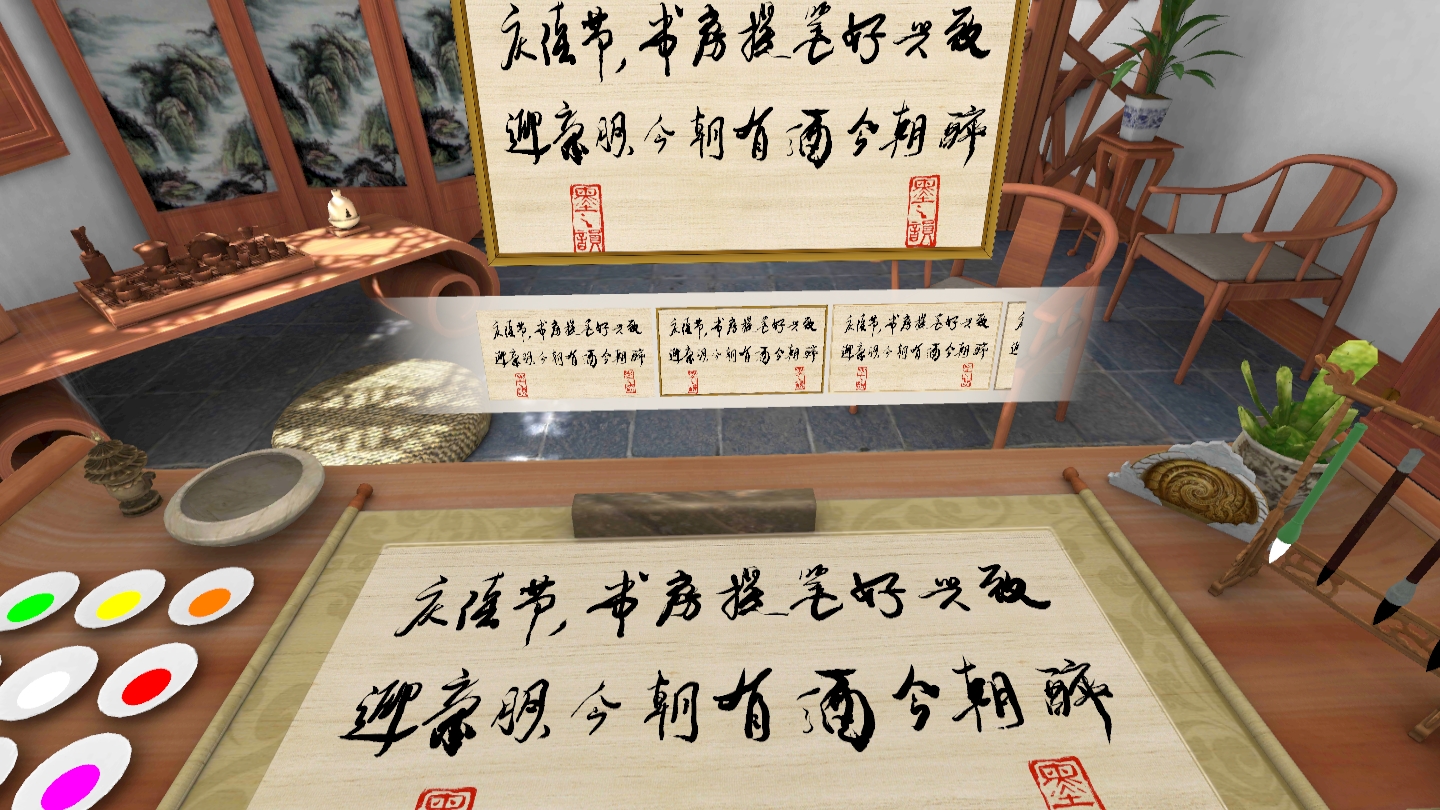 庆佳节,书房提笔好兴致
迎豪朋,今朝有酒今朝醉
墨之韻
墨之韻
庆佳节,书房提笔好兴致
迎豪朋,今朝有酒今朝醉
庆佳节,书房提笔好兴致
迎豪朋,今朝有酒今朝醉
庆佳节,书房提笔好兴致
迎豪朋,今朝有酒今朝醉
庆佳节,书房提笔好兴致
迎豪朋,今朝有酒今朝醉
墨